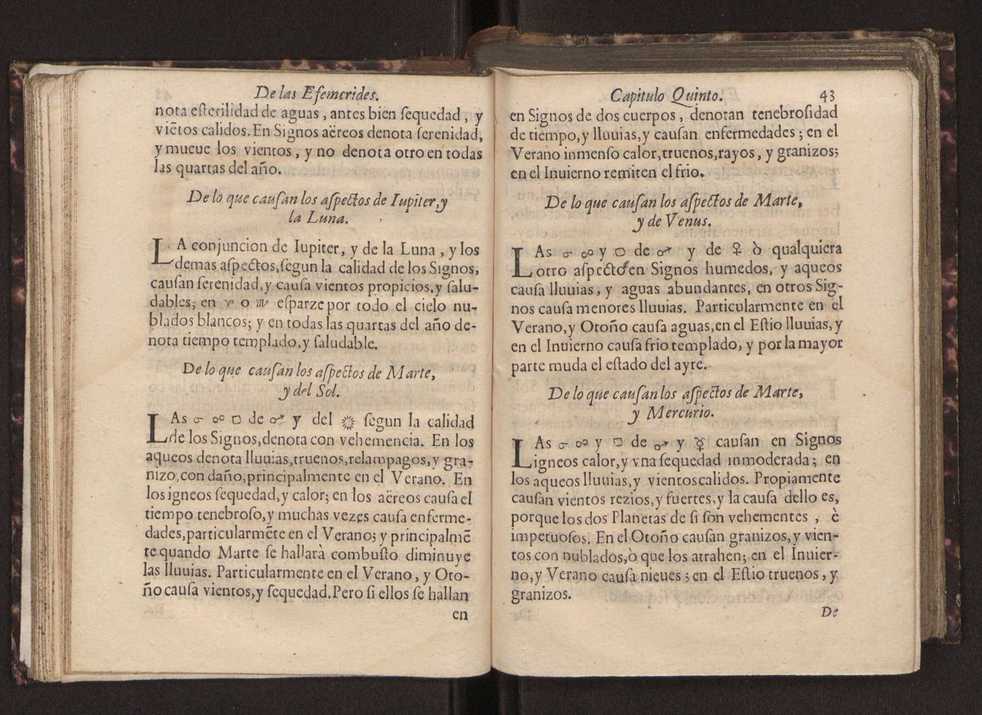 De las Efemerides.
nota eſterilidad de aguas, antes bien ſequedad, y
viẽtos calidos. En Signos aëreos denota ſerenidad,
y mueue los vientos, y no denota otro en todas
las quartas del año.
De lo que cauſan los aſpectos de Iupiter, y
la Luna.
LA conjuncion de Iupiter, y de la Luna, y los
demas aſpectos, ſegun la calidad de los Signos,
cauſan ſerenidad, y cauſa vientos propicios, y ſalu-
dables; en ♈ o ♏ eſparze por todo el cielo nu-
blados blancos; y en todas las quartas del año de-
nota tiempo templado, y ſaludable.
De lo que cauſan los aſpectos de Marte,
y del Sol.
LAs ☌ ☍ □ de ♂ y del ☼ ſegun la calidad
de los Signos, denota con vehemencia. En los
aqueos denota lluuias, truenos, relampagos, y gra-
nizo, con daño, principalmente en el Verano. En
los igneos ſequedad, y calor; en los aëreos cauſa el
tiempo tenebroſo, y muchas vezes cauſa enferme-
dades, particularmẽte en el Verano; y principalmẽ
te quando Marte ſe hallarà combuſto diminuye
las lluuias. Particularmente en el Verano, y Oto-
ño cauſa vientos, y ſequedad. Pero ſi ellos ſe hallan
en
Capitulo Quinto. 43
en Signos de dos cuerpos, denotan tenebroſidad
de tiempo, y lluuias, y cauſan enfermedades; en el
Verano inmenſo calor, truenos, rayos, y granizos;
en el Inuierno remiten el frio.
De lo que cauſan los aſpectos de Marte,
y de Venus.
LAs ☌ ☍ y □ de ♂ y de ♀ ò qualquiera
otro aſpecto en Signos humedos, y aqueos
cauſa lluuias, y aguas abundantes, en otros Sig-
nos cauſa menores lluuias. Particularmente en el
Verano, y Otoño cauſa aguas, en el Eſtio lluuias, y
en el Inuierno cauſa frio templado, y por la mayor
parte muda el eſtado del ayre.
De lo que cauſan los aſpectos de Marte,
y Mercurio.
LAs ☌ ☍ y □ de ♂ y ☿ cauſan en Signos
igneos calor, y vna ſequedad inmoderada; en
los aqueos lluuias, y vientos calidos. Propiamente
cauſan vientos rezios, y fuertes, y la cauſa dello es,
porque los dos Planetas de ſi ſon vehementes, è
impetuoſos. En el Otoño cauſan granizos, y vien-
tos con nublados, ò que los atrahen; en el Inuier-
no, y Verano cauſa nieues; en el Eſtio truenos, y
granizos.
De